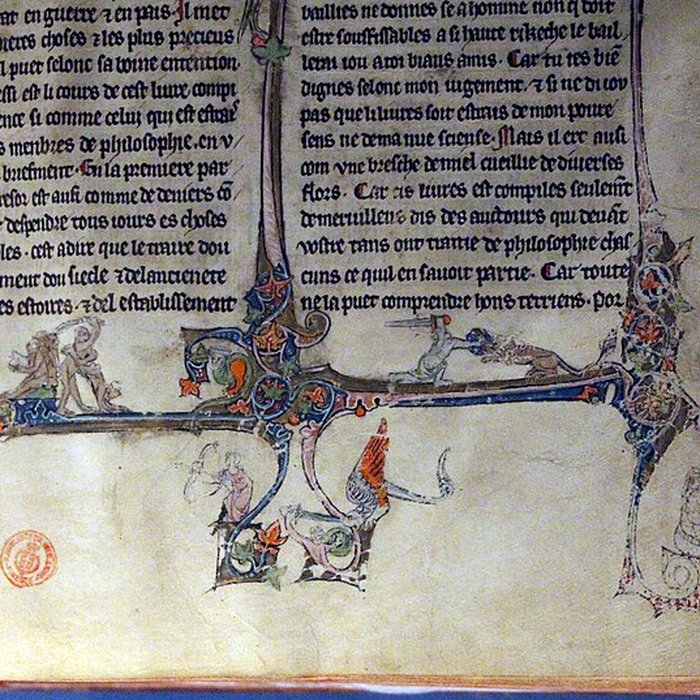 en guerre ⁊ en pais. Il met
choses ⁊ les plus precieus
puet selonc sa boine entention
est li cours de cest livre compi
ence si comme celui qui est estrais
menbres de philosophie. en v
briefment. En la premiere par
tresor est ausi comme de deniers cō
despendre tous iours es choses
les. cest adire que le traite dou
ment dou siecle ⁊ delancienete
es estoires. ⁊ del establissement
baillies ne donnes se a homme non q̄ soit
estre souffissables a si haute rikeche le bail
lerai iou a toi biaus amis. Car tu ies biē
dignes selonc mon iugement. ⁊ si ne di iou
pas que li liures soit estrais de mon poure
sens ne de ma nue sciense. Mais il ert ausi
com vne bresche de miel cueillie de diuerses
flors. Car cis liures est compiles seulemt̄
de merueilleus dis des auctours qui deuāt
vostre tans ont traitie de philosophie chas
cuns ce quil en sauoit partie. Car toute
ne la puet comprendre hons terriens. Por